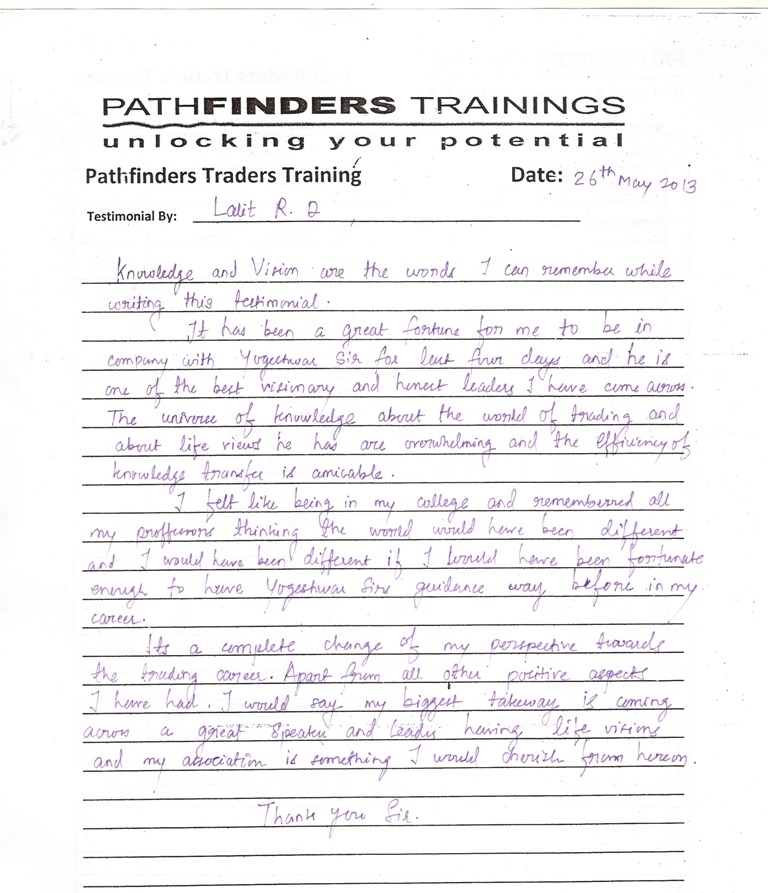 PATHFINDERS TRAININGS
unlocking your potential
Pathfinders Traders Training Date: 26th May 2013
Testimonial By: Lalit R. D
Knowledge and Vision are the words I can remember while
writing this testimonial.
It has been a great fortune for me to be in
company with Yogeshwar Sir for last four days and he is
one of the best visionary and honest leaders I have come across.
The universe of knowledge about the world of trading and
about life views he has are overwhelming and the efficiency of
knowledge transfer is amicable.
I felt like being in my college and rememberred all
my proffursors thinking the world would have been different
and I would have been different if I would have been fortunate
enough to have Yogeshwar Sirs guidance way before in my
career.
Its a complete change of my perspective towards
the trading career. Apart from all other positive aspects
I have had. I would say my biggest takeway is coming
across a great Speaker and Leader having life visions
and my association is something I would cherish from hereon.
Thank you Sir.